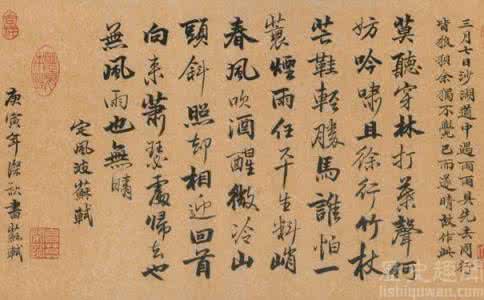 三月七日沙湖道中遇雨雨具先去同行
皆狼狽余獨不覺已而遂晴故作此
莫聽穿林打葉聲何
妨吟嘯且徐行竹杖
芒鞋輕勝馬誰怕一
蓑煙雨任平生料峭
春風吹酒醒微冷山
頭斜照却相迎回首
向來蕭瑟處歸去也
無風雨也無晴
定風波蘇軾
庚寅年深秋書蘇軾
史趣闻
lishiquwan.com